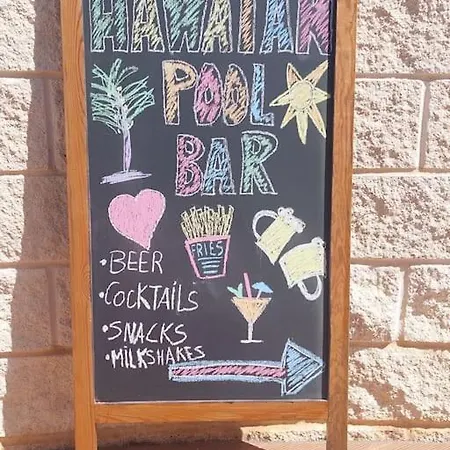 HAWAIIAN
POOL
BAR
FRIES
•BEER
•COCKTAILS
•SNACKS
•MILKSHAKES